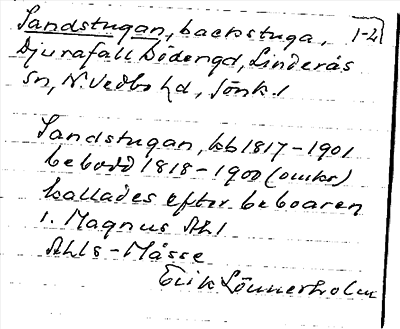 Sandstugan, backstuga, 1-2
Djurafall Södengd, Linderås
sn, N. Vedbo hd, Jönk. l
Sandstugan, kb 1817-1901
bebodd 1818-1900 (omkr)
kallades efter beboaren
1. Magnus Ahl
Ahls-Måsse
Erik Lönnerholm